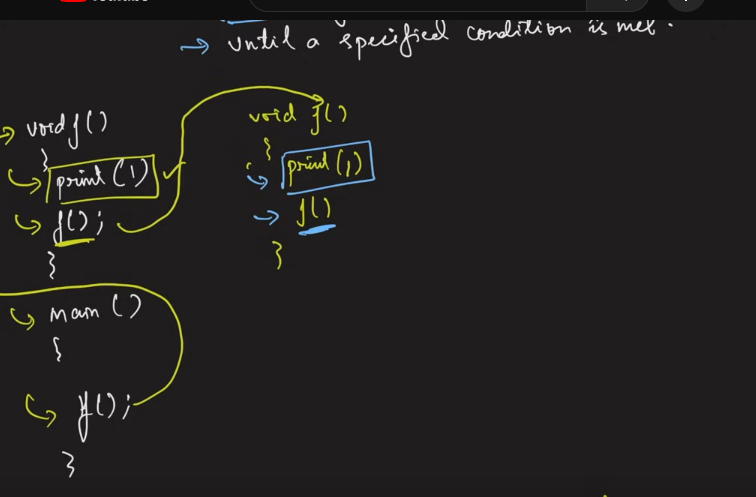 → until a specified condition is met.
void f()
{
print (1)
f();
}
main ()
{
f();
}
void f()
{
print (1)
f()
}